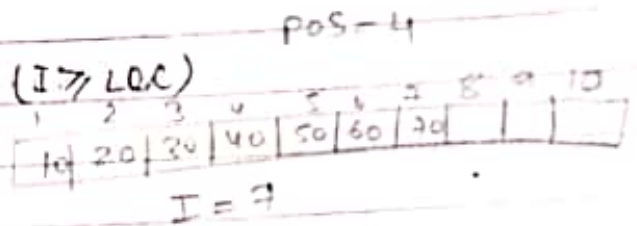 POS-4
(I ≥ LOC)
1 2 3 4 5 6 7 8 9 10
10 20 30 40 50 60 70
I = 7